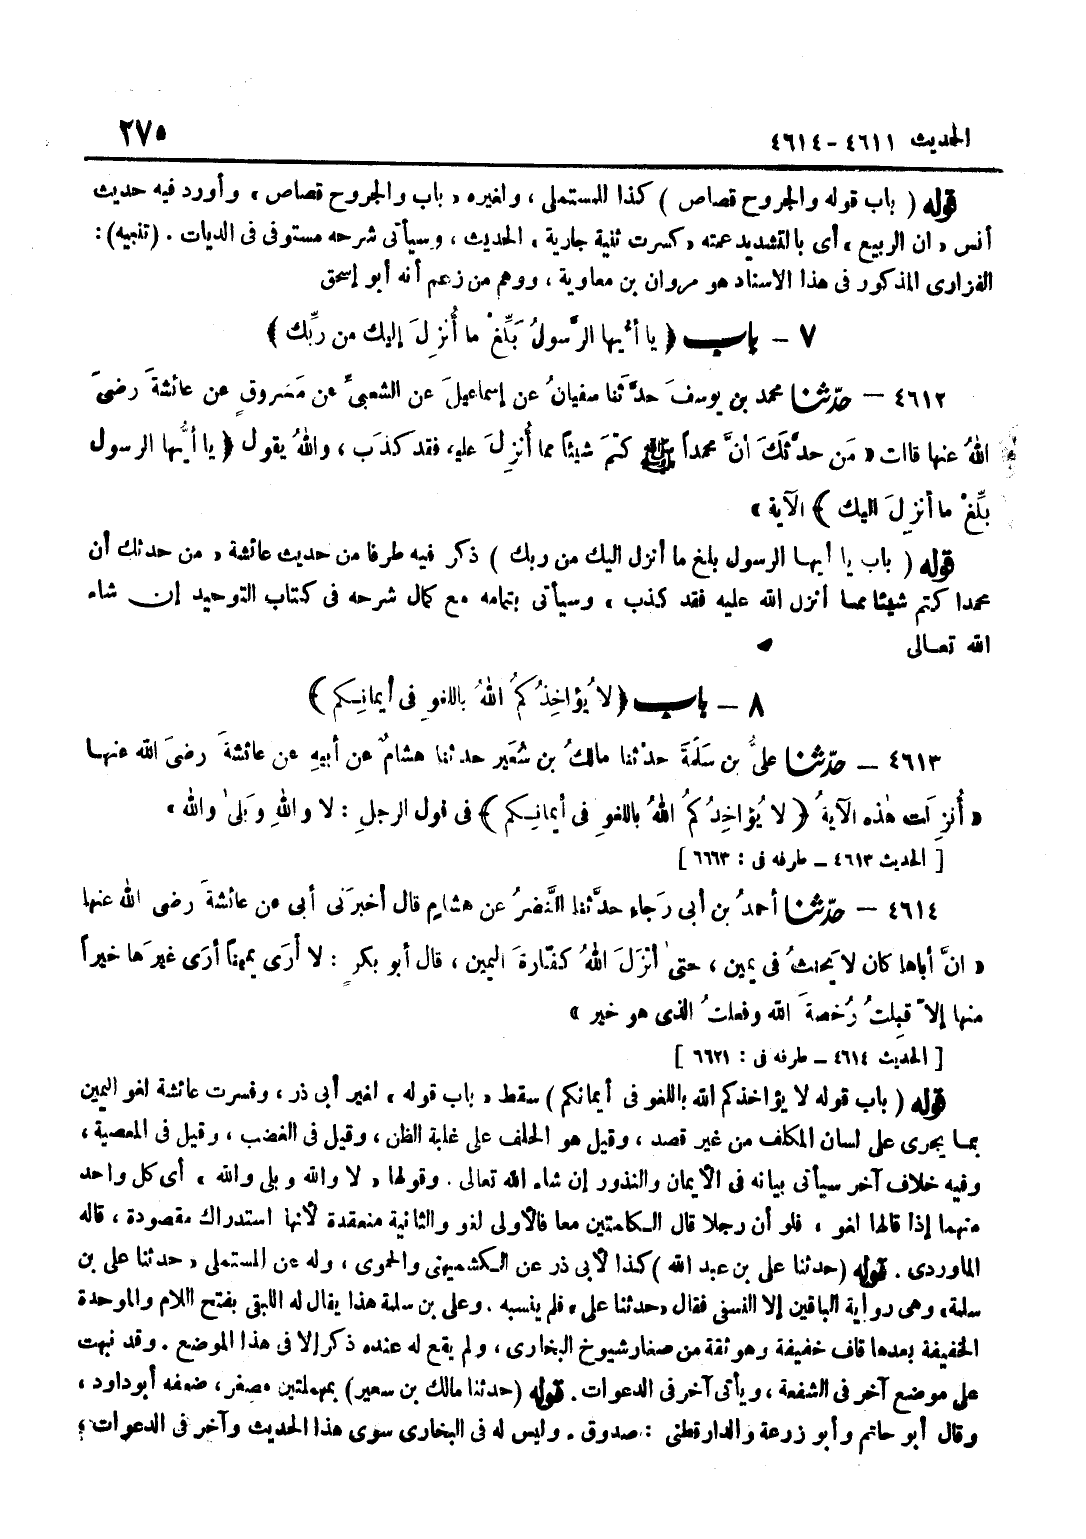 الحديث ٤٦١١ - ٤٦١٤ ٢٧٥
قوله ( باب قوله والجروح قصاص ) كذا للمستملى ، ولغيره « باب والجروح قصاص » وأورد فيه حديث
أنس « ان الربيع » أى بالتشديد عمته « كسرت ثنية جارية » الحديث ، وسيأتى شرحه مستوفى فى الديات . (تنبيه) :
الفزارى المذكور فى هذا الاسناد هو مروان بن معاوية ، ووهم من زعم أنه أبو إسحق
٧ - باب ﴿ يا أيُّها الرَّسولُ بَلِّغْ ما أُنزِلَ إليك من ربِّك ﴾
٤٦١٢ - حدّثنا محمد بن يوسفَ حدَّثنا سفيانُ عن إسماعيلَ عن الشعبىِّ عن مَسروقٍ عن عائشةَ رضىَ
اللهُ عنها قالت « مَن حدَّثكَ أنَّ محمداً ﷺ كتمَ شيئاً مما أُنزِلَ عليه فقد كذَب ، واللهُ يقول ﴿ يا أيُّها الرسول
بلِّغْ ما أنزِلَ اليك ﴾ الآية »
قوله ( باب يا أيها الرسول بلغ ما أنزل اليك من ربك ) ذكر فيه طرفا من حديث عائشة « من حدثك أن
محمدا كتم شيئا مما أنزل الله عليه فقد كذب » وسيأتى بتمامه مع كمال شرحه فى كتاب التوحيد إن شاء
الله تعالى
٨ - باب ﴿ لا يُؤاخِذُكمُ اللهُ باللغوِ فى أيمانِكم ﴾
٤٦١٣ - حدّثنا علىُّ بن سَلَمةَ حدثنا مالكُ بن سُعَير حدثنا هشامٌ عن أبيهِ عن عائشةَ رضىَ الله عنها
« أُنزِلَت هٰذه الآيةُ ﴿ لا يُؤاخِذُكمُ اللهُ باللغوِ فى أيمانِكم ﴾ فى قول الرجلِ : لا واللهِ وبَلىٰ والله »
[ الحديث ٤٦١٣ ـ طرفه فى : ٦٦٦٣ ]
٤٦١٤ - حدّثنا أحمدُ بن أبى رَجاء حدَّثنا النَّضرُ عن هشامٍ قال أخبرَنى أبى عن عائشةَ رضى الله عنها
« انَّ أباها كان لا يَحنثُ فى يمين ، حتىٰ أنزَلَ اللهُ كفّارةَ اليمين ، قال أبو بكرٍ : لا أرَى يميناً أرَى غيرَها خيراً
منها إلاّ قبِلتُ رُخصةَ الله وفعلتُ الذى هو خير »
[ الحديث ٤٦١٤ ـ طرفه فى : ٦٦٢١ ]
قوله ( باب قوله لا يؤاخذكم الله باللغو فى أيمانكم ) سقط « باب قوله » لغير أبى ذر ، وفسرت عائشة لغو اليمين
بما يجرى على لسان المكلف من غير قصد ، وقيل هو الحلف على غلبة الظن ، وقيل فى الغضب ، وقيل فى المعصية ،
وفيه خلاف آخر سيأتى بيانه فى الأيمان والنذور إن شاء الله تعالى . وقولها « لا والله وبلى والله » أى كل واحد
منهما إذا قالها لغو ، فلو أن رجلا قال الكلمتين معا فالأولى لغو والثانية منعقدة لأنها استدراك مقصودة ، قاله
الماوردى . قوله (حدثنا على بن عبد الله ) كذا لأبى ذر عن الكشميهنى والحموى ، وله عن المستملى « حدثنا على بن
سلمة» وهى رواية الباقين إلا النسفى فقال «حدثنا على» فلم ينسبه . وعلى بن سلمة هذا يقال له اللبقى بفتح اللام والموحدة
الخفيفة بعدها قاف خفيفة وهو ثقة من صغار شيوخ البخارى ، ولم يقع له عنده ذكر إلا فى هذا الموضع . وقد نبهت
على موضع آخر فى الشفعة ، ويأتى آخر فى الدعوات . قوله (حدثنا مالك بن سعير) بمهملتين مصغر ، ضعفه أبو داود ،
وقال أبو حاتم وأبو زرعة والدارقطنى : صدوق . وليس له فى البخارى سوى هذا الحديث وآخر فى الدعوات ؛